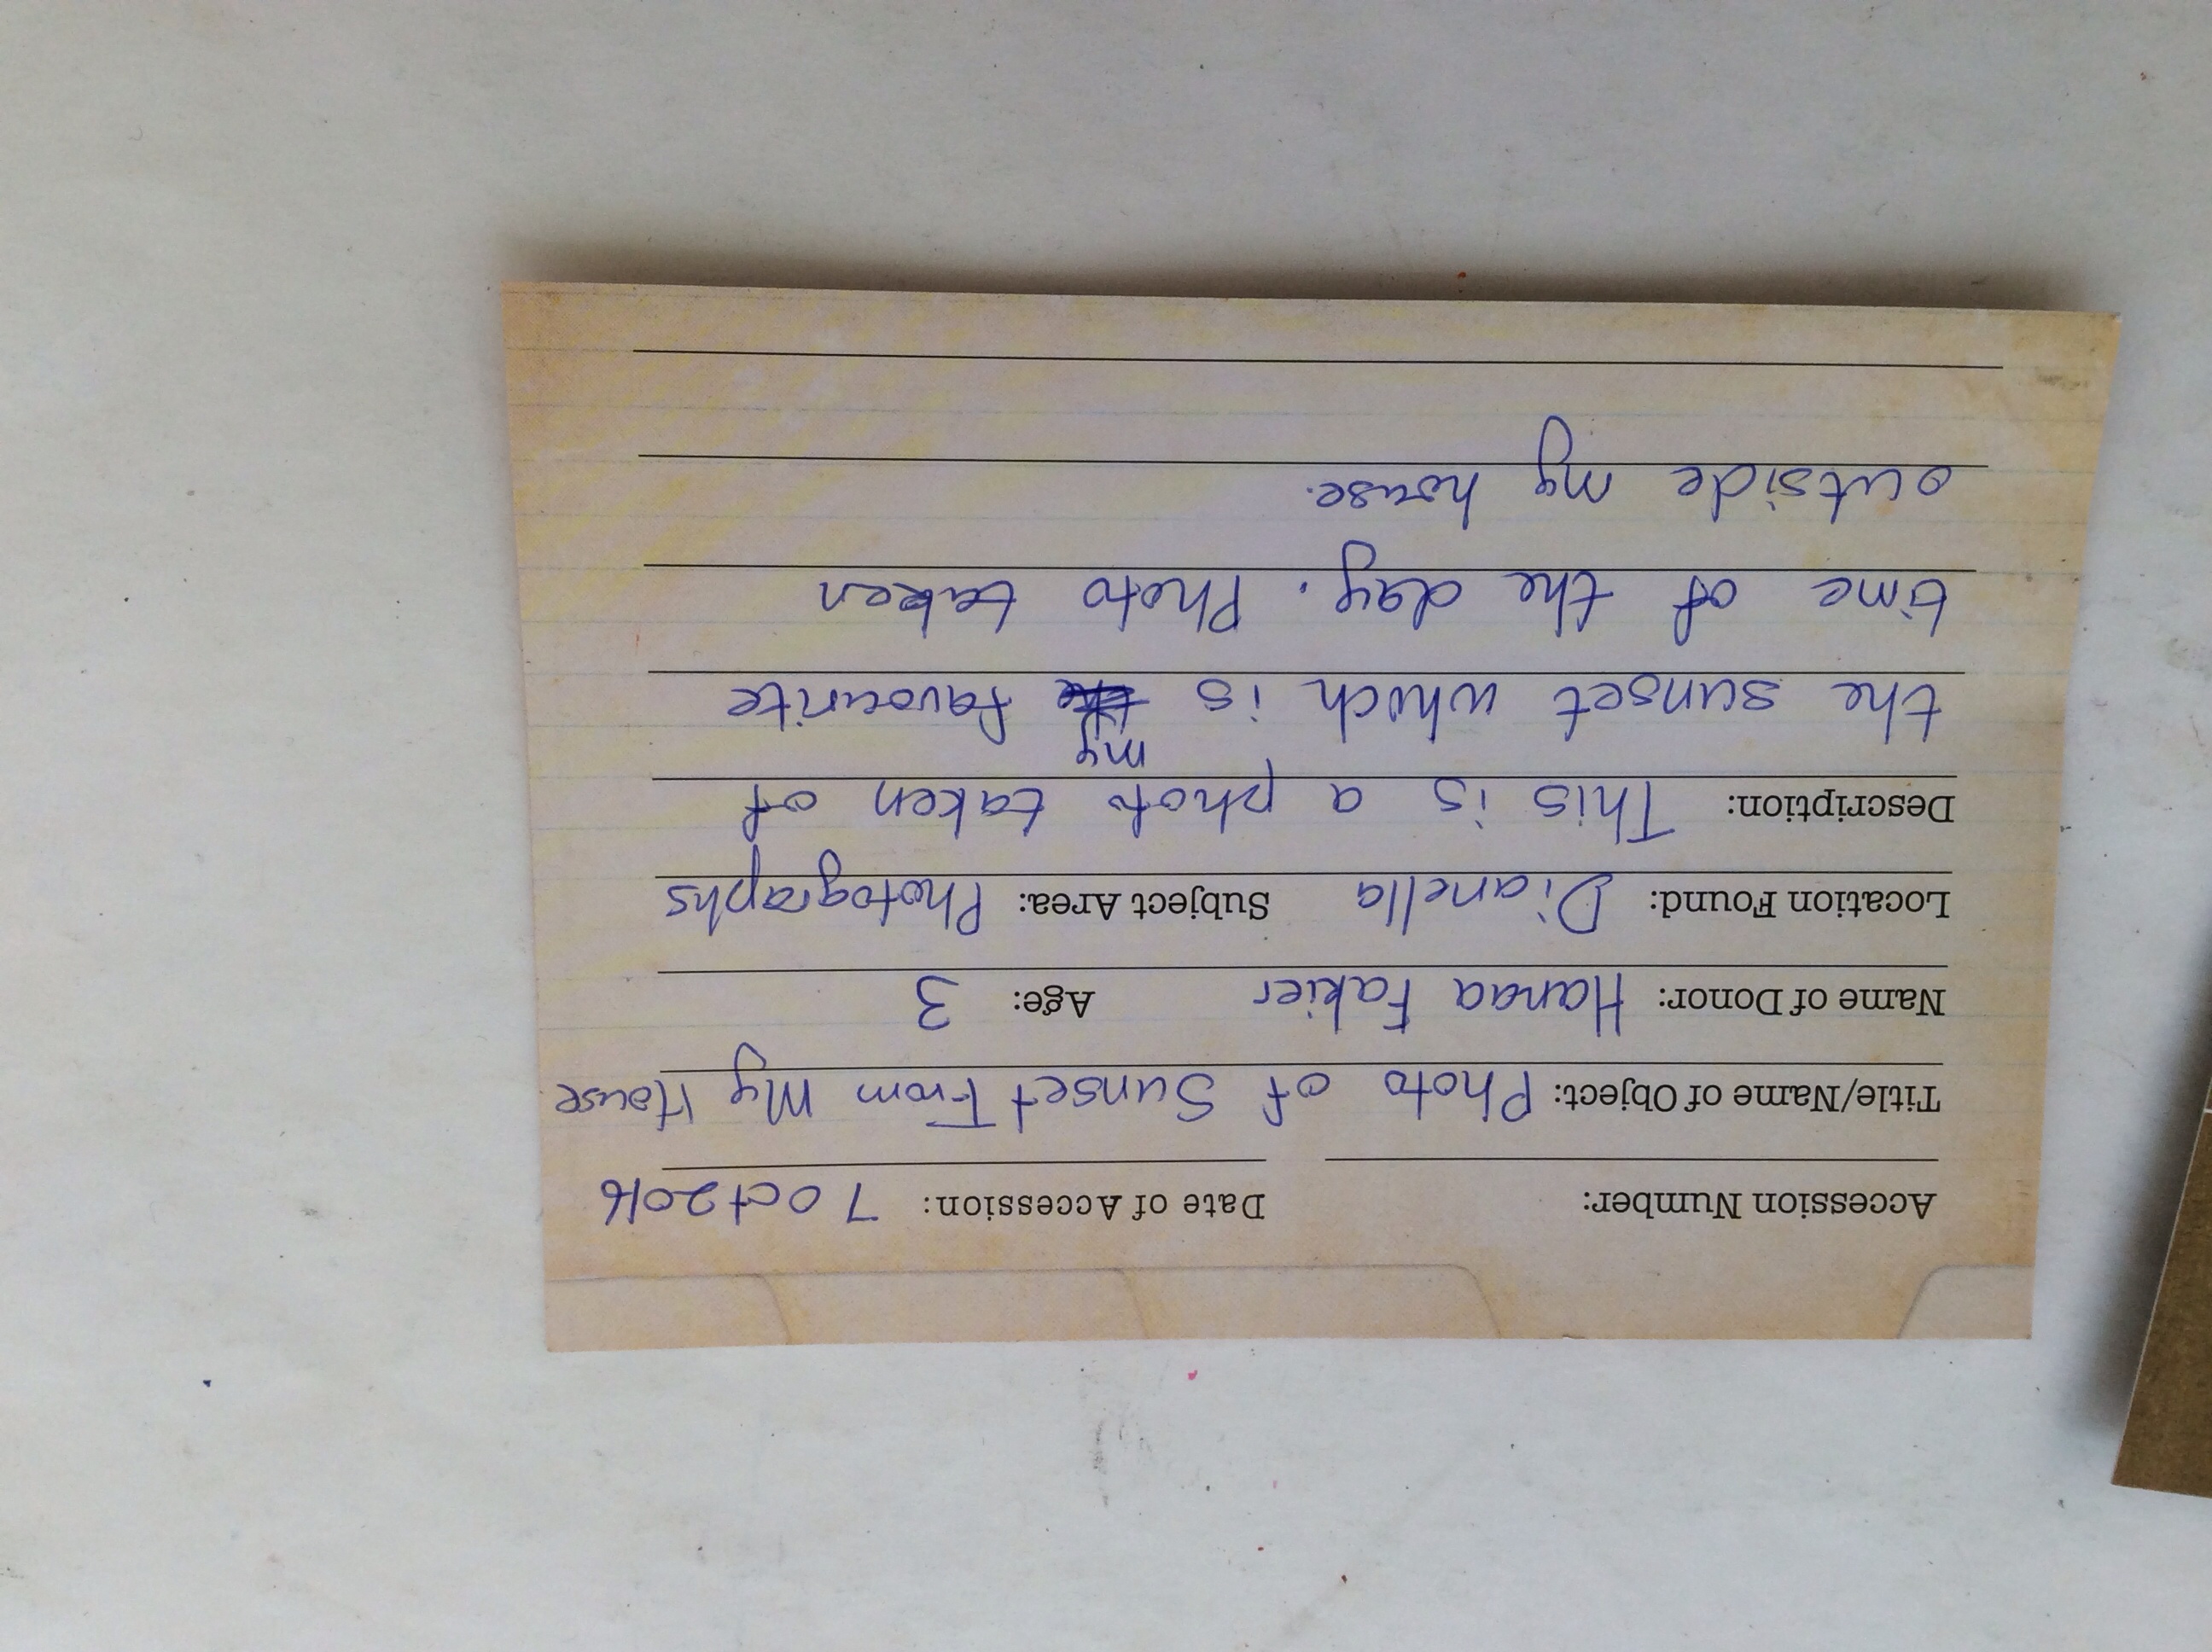 Accession Number: Date of Accession: 7 Oct 2016
Title/Name of Object: Photo of Sunset From My House
Name of Donor: Hanaa Fakier Age: 3
Location Found: Dianella Subject Area: Photographs
Description: This is a photo taken of
my
the sunset which is the favourite
time of the day. Photo taken
outside my house.